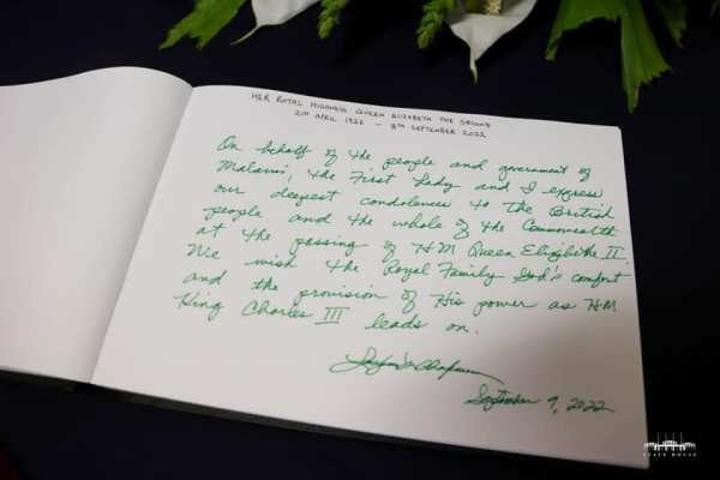 HER ROYAL HIGHNESS QUEEN ELIZABETH THE SECOND
21st APRIL 1926 - 8TH SEPTEMBER 2022
On behalf of the people and government of
Malawi, the First Lady and I express
our deepest condolences to the British
people and the whole of the Commonwealth
at the passing of HM Queen II.
We wish the Royal Family God's comfort
and the provision of His power as HM
King Charles III leads on.
September 9, 2022
STATE HOUSE